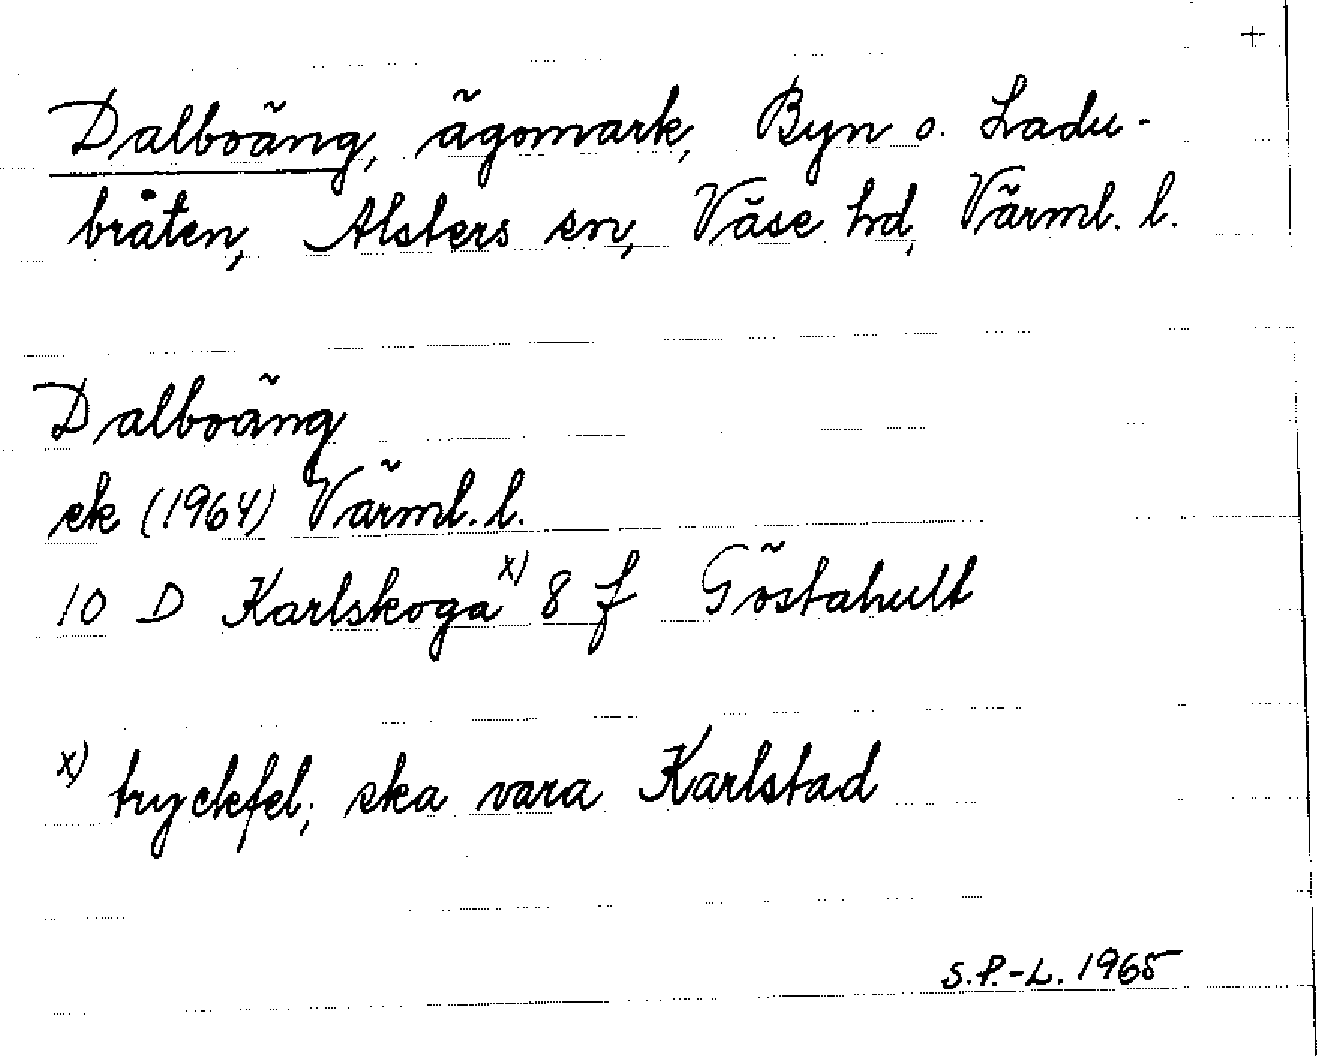 +
Dalboäng, ägomark, Byn o. Ladu-
bråten, Alsters sn, Väse hd, Värml. l.
Dalboäng
ek (1964) Värml. l.
10 D Karlskoga x) 8 f Göstahult
x) tryckfel; ska vara Karlstad
S.P.-L. 1965